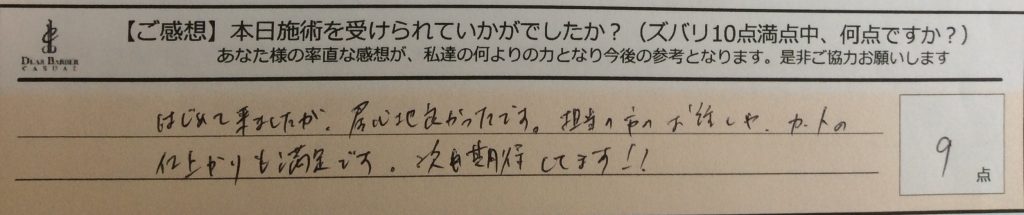 【ご感想】本日施術を受けられていかがでしたか？（ズバリ10点満点中、何点ですか？）
あなた様の率直な感想が、私達の何よりの力となり今後の参考となります。是非ご協力お願いします
DEAR BARBER
CASUAL
はじめて来ましたが、居心地良かったです。担当の方のお話しや、カットの
仕上がりも満足です。次も期待してます!!
9
点